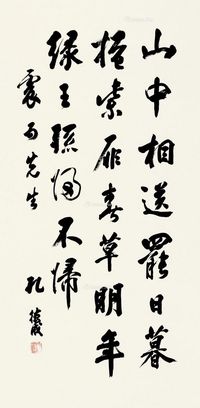 山中相送罷日暮
掩柴扉春草明年
綠王孫歸不歸
震 先生
孔德成